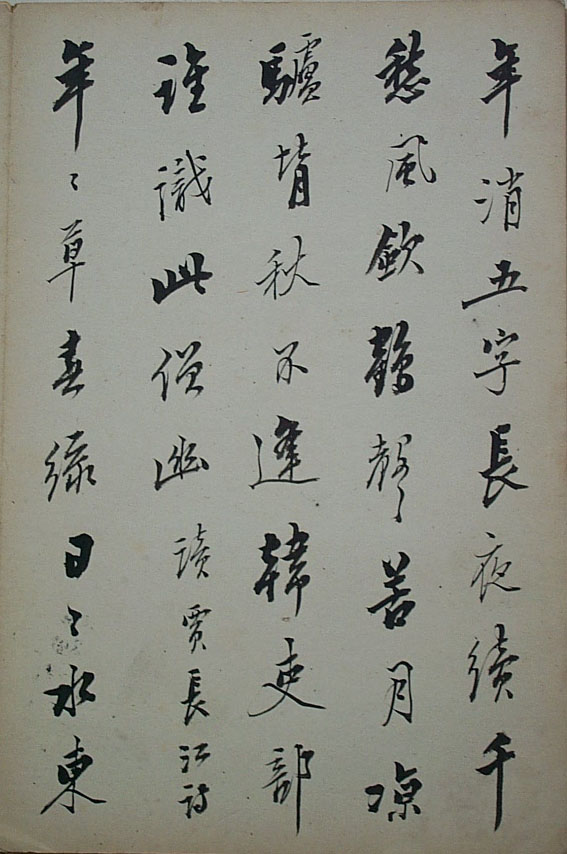 年消五字長夜續千
愁風欽鶴聲苦月凉
驢背秋不逢韓吏部
誰識此僧幽讀賈長江詩
年々草春緑日々水東